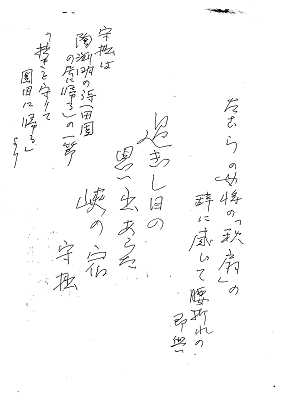 たちらの女将の「秋扇」の
辞に感じて腰折れの
即興
過ぎし日の
思い出あらた
峡の宿
守拙
守拙は
陶淵明の詩「田園
の居に帰る」の一節
「拙を守りて
園田に帰る」
より